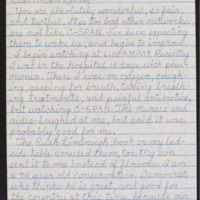 You are absolutely wonderful, so fair,
and tactful. It is too bad other networks
are not like C-SPAN. I've been expecting
them to wake up, and begin to improve.
I begin watching at
I was in the hospital 12 days with pneu-
monia. There I was on oxygen, cough-
ing, gasping for breath, taking breath-
ing treatments, and painful antibiotics,
but watching C-SPAN. The nurses and
aides laughed at me, but said it was
probably good for me.
The Rush Limbaugh book on my bed-
side table, amused them, too. My son
sent it to me instead of flowers. I am
a 74 year old conservative Democrat,
who thinks he is great, and good for
the country at this time, because we